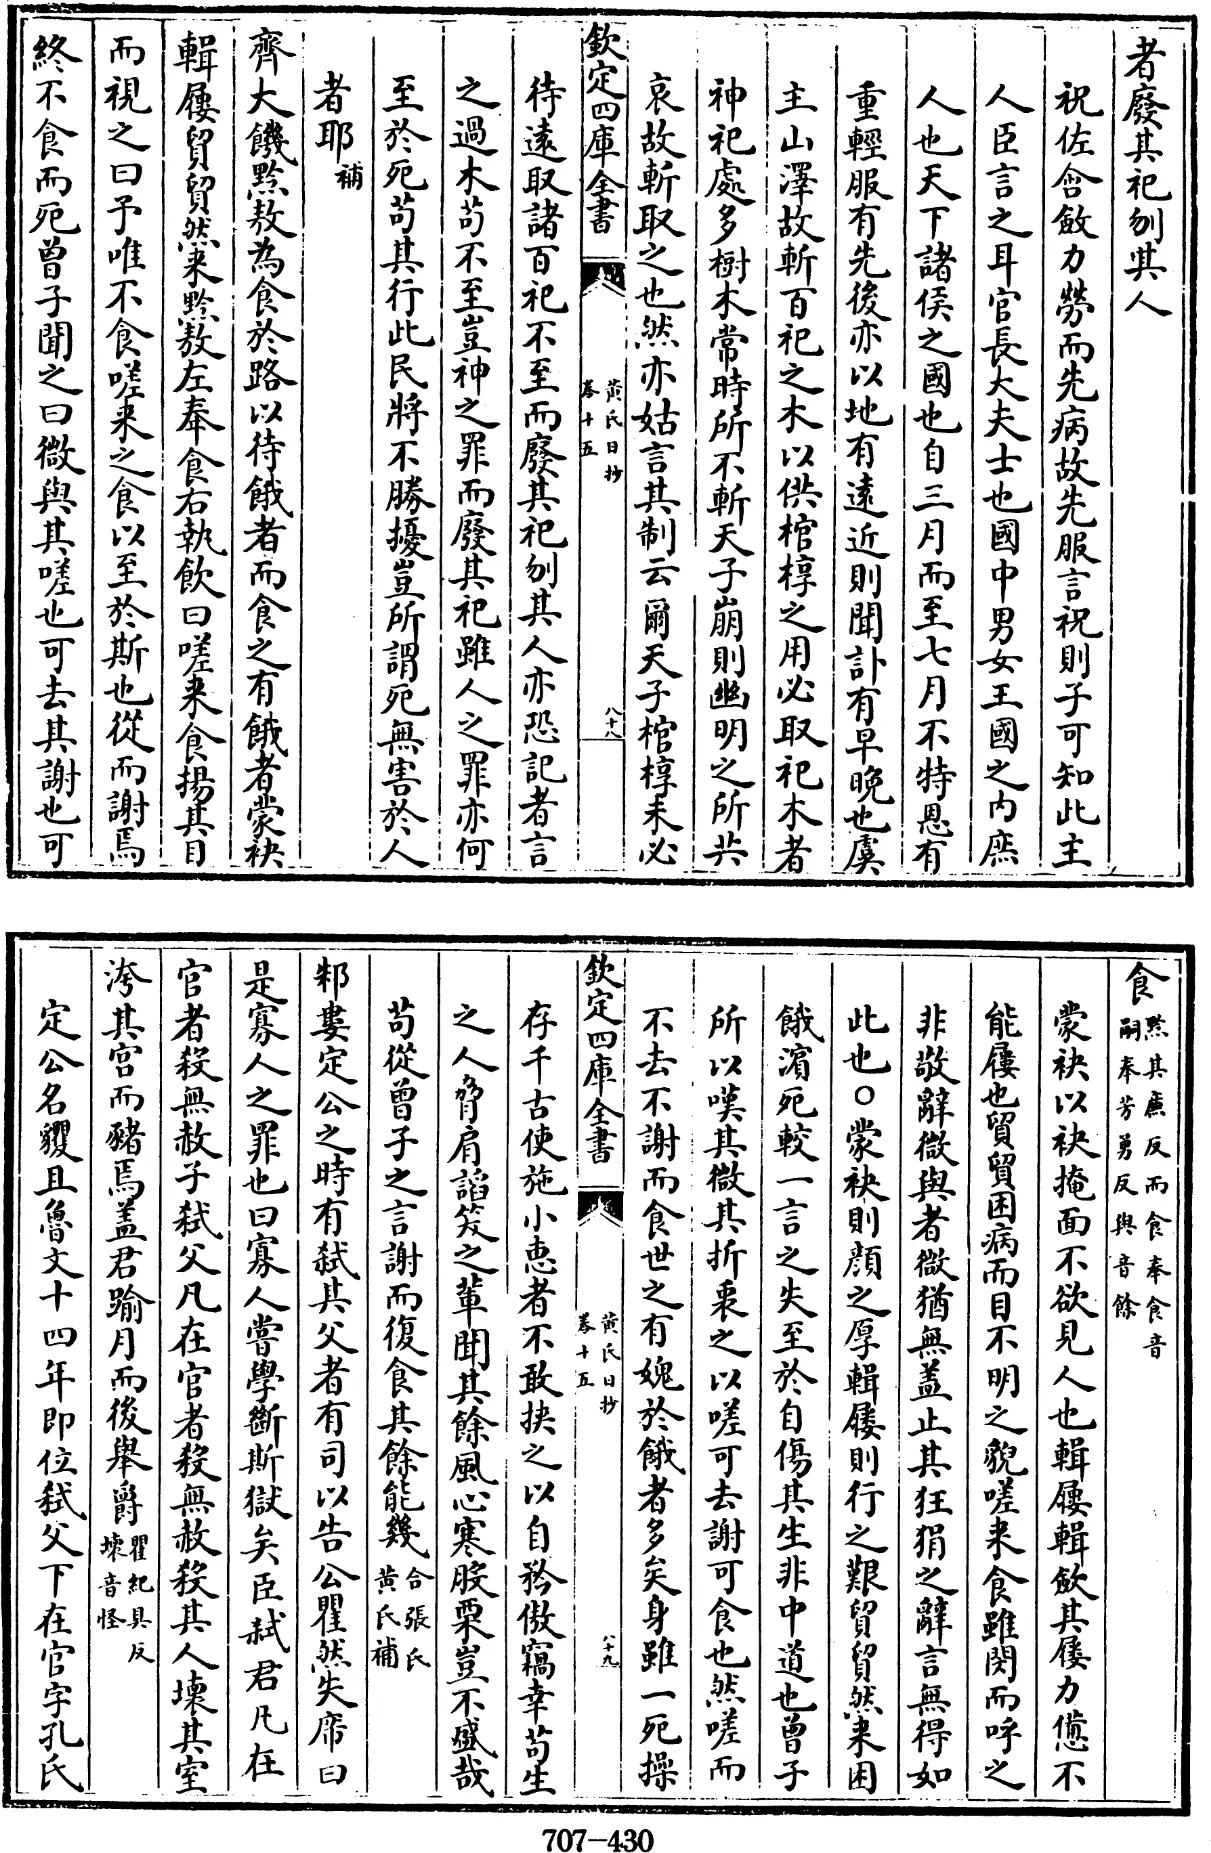 者廢其祀刎其人
祝佐含斂力勞而先病故先服言祝則子可知此主
人臣言之耳官長大夫士也國中男女王國之内庶
人也天下諸侯之國也自三月而至七月不特恩有
重輕服有先後亦以地有遠近則聞訃有早晚也虞
主山澤故斬百祀之木以供棺椁之用必取祀木者
神祀處多樹木常時所不斬天子崩則幽明之所共
哀故斬取之也然亦姑言其制云爾天子棺椁未必
欽定四庫全書
黄氏日抄
卷十五
八十八
待遠取諸百祀不至而廢其祀刎其人亦恐記者言
之過木苟不至豈神之罪而廢其祀雖人之罪亦何
至於死苟其行此民將不勝擾豈所謂死無害於人
者耶補
齊大饑黔敖為食於路以待餓者而食之有餓者蒙袂
輯屨貿貿然来黔敖左奉食右執飲曰嗟来食揚其目
而視之曰予唯不食嗟来之食以至於斯也從而謝焉
終不食而死曾子聞之曰微與其嗟也可去其謝也可
食黔其亷反而食奉食音
嗣奉芳勇反與音餘
蒙袂以袂掩面不欲見人也輯屨輯斂其屨力憊不
能屨也貿貿困病而目不明之貌嗟来食雖閔而呼之
非敬辭微與者微猶無蓋止其狂狷之辭言無得如
此也○蒙袂則顔之厚輯屨則行之艱貿貿然来困
餓濱死較一言之失至於自傷其生非中道也曾子
所以嘆其微其折衷之以嗟可去謝可食也然嗟而
不去不謝而食世之有媿於餓者多矣身雖一死操
欽定四庫全書
黄氏日抄
卷十五
八十九
存千古使施小恵者不敢挟之以自矜傲竊幸苟生
之人脅肩謟笑之輩聞其餘風心寒股栗豈不盛哉
苟從曾子之言謝而復食其餘能幾合張氏
黄氏補
邾婁定公之時有弑其父者有司以告公瞿然失席曰
是寡人之罪也曰寡人嘗學斷斯獄矣臣弑君凡在
官者殺無赦子弑父凡在官者殺無赦殺其人壞其室
洿其宫而豬焉蓋君踰月而後舉爵瞿紀具反
壊音怪
定公名貜且魯文十四年即位弑父下在官字孔氏
707-430